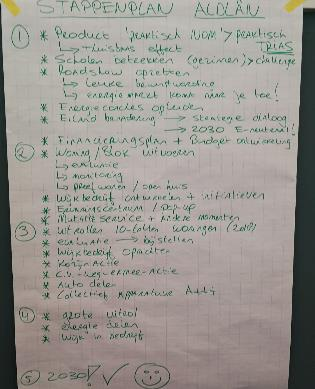 STAPPENPLAN ALDLÂN
① * Product 'praktisch NOM' > praktisch TRIAS
↳ + thuisbus effect
* Scholen betrekken (gezinnen) > challenge
* Roadshow opzetten
↳ leuke bewustwording
↳ energiemarkt komt naar je toe!
* Energiecoaches opleiden
* Eiland benadering → strategie dialoog
→ 2030 E-neutraal!
* Financieringsplan + Budget ontwikkeling
② * Woning / Blok uitvoeren
↳ evaluatie
↳ monitoring
↳ proefwonen / open huis
* Wijkbedrijf ontwikkelen + initiatieven
* / Pop-up
* Mutatie service + andere momenten
③ * Uitrollen 10-tallen woningen
* evaluatie → bijstellen
* Wijkbedrijf oprichten
* Actie
* C.V.- -Actie
* Auto delen
* Collectief
④ * grote uitrol
* energie delen
* Wijk in bedrijf
⑤ 2030! ✓ ☺